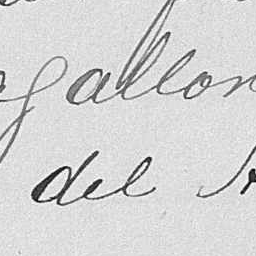 gallon
del